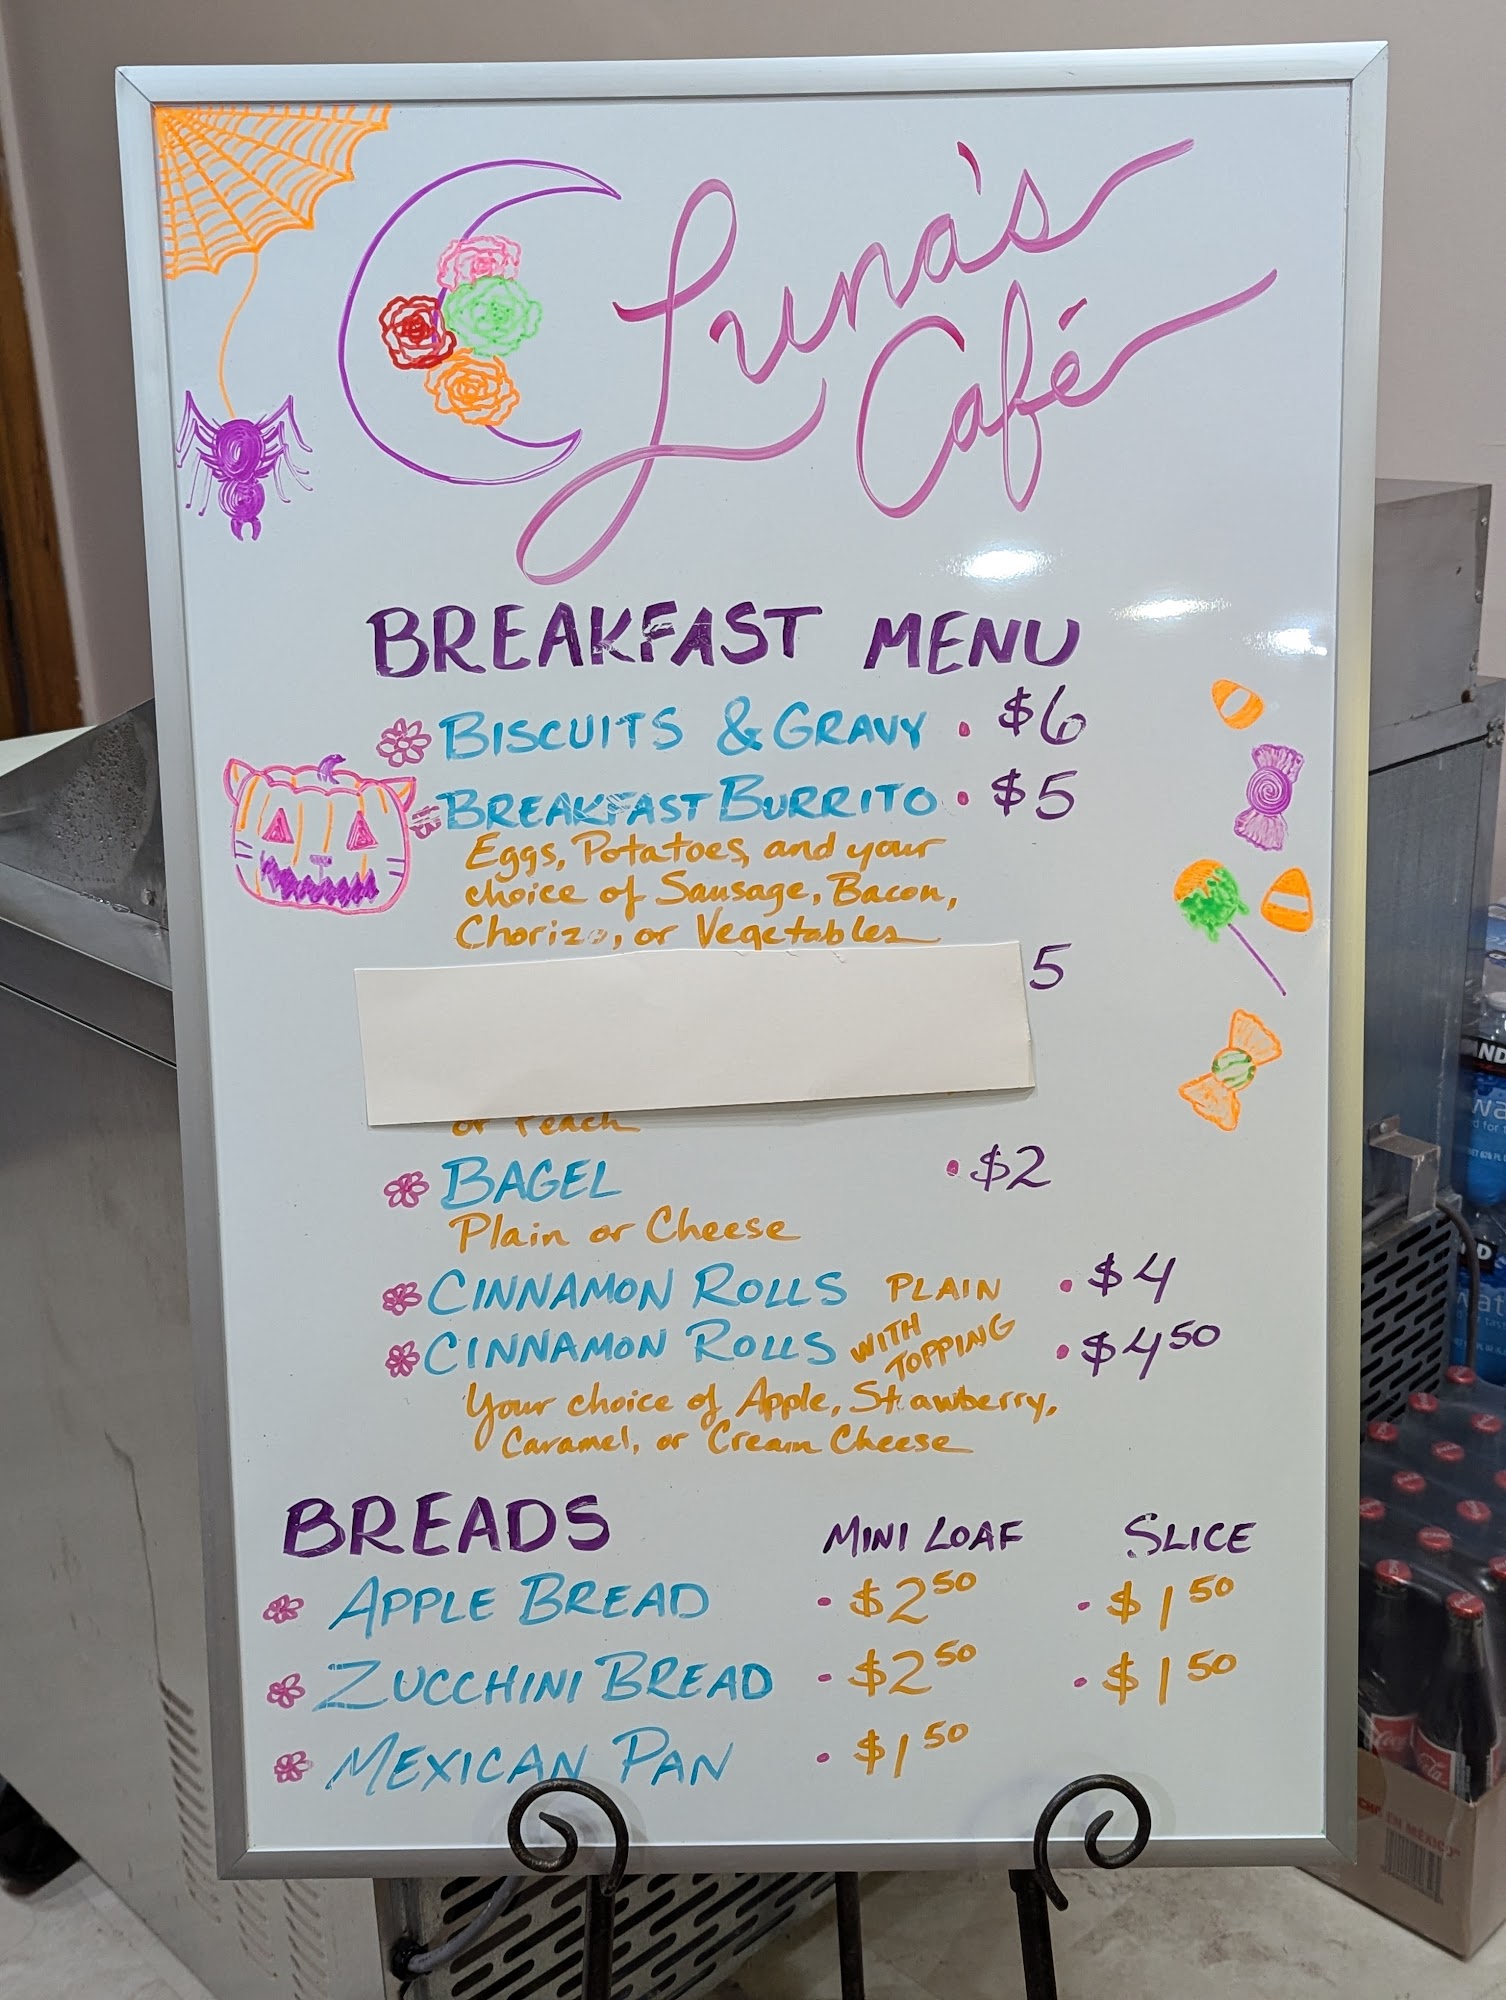 Luna's
Café
BREAKFAST MENU
BISCUITS & GRAVY • $6
BREAKFAST BURRITO • $5
Eggs, Potatoes, and your
choice of Sausage, Bacon,
Chorizo, or Vegetables
5
or Peach
BAGEL • $2
Plain or Cheese
CINNAMON ROLLS PLAIN • $4
CINNAMON ROLLS WITH TOPPING • $4 50
Your choice of Apple, Strawberry,
Caramel, or Cream Cheese
BREADS MINI LOAF SLICE
APPLE BREAD • $2 50 • $1 50
ZUCCHINI BREAD • $2 50 • $1 50
MEXICAN PAN • $1 50